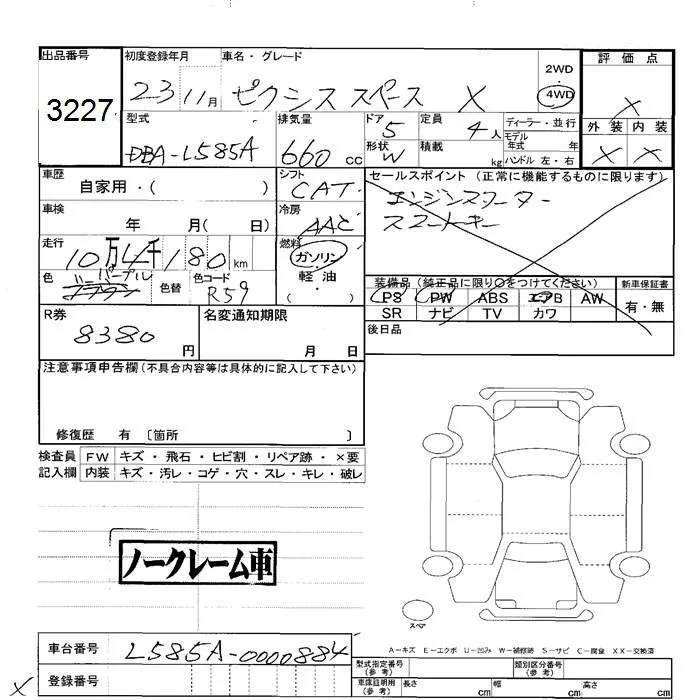 出品番号
3227
初度登録年月
23 11月
車名・グレード
ピクシス スペース X
2WD
4WD
評価点
X
外装 内装
X X
型式
DBA-L585A
排気量
660 cc
ドア
5
形状
W
定員
4 人
積載
kg
ディーラー・並行
モデル
年式 年
ハンドル 左・右
車歴
自家用・( )
シフト
CAT
車検
年 月( 日)
冷房
AAC
走行
10万 千180 km
燃料
ガソリン
軽油
( )
色
パープル
色替
色コード
R59
セールスポイント (正常に機能するものに限ります)
エンジンスターター
スマートキー
装備品 (純正品に限り○をつけてください)
新車保証書
PS PW ABS エアB AW
SR ナビ TV カワ
有・無
R券
8380 円
名変通知期限
月 日
後日品
注意事項申告欄 (不具合内容等は具体的に記入して下さい)
修復歴 有 〔箇所 〕
検査員
記入欄
FW キズ・飛石・ヒビ割・リペア跡・×要
内装 キズ・汚レ・コゲ・穴・スレ・キレ・破レ
ノークレーム車
スペア
A-キズ E-エクボ U-凹み W-補修跡 S-サビ C-腐食 XX-交換済
車台番号
L585A-0000884
X
登録番号
型式指定番号
(参考)
類別区分番号
(参考)
車庫証明用
(参考)
長さ cm 幅 cm 高さ cm